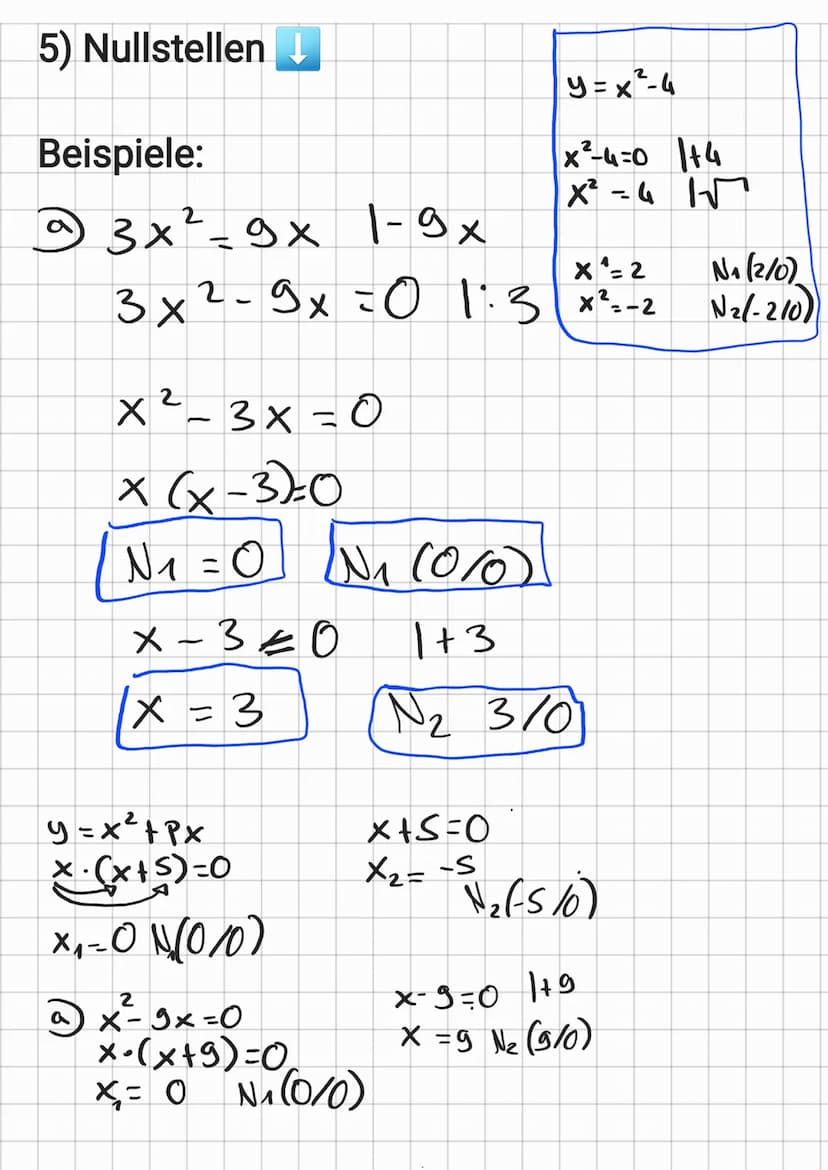 5) Nullstellen ⬇️
y = x²-4
x²-4=0 |+4
x² = 4 |√
x¹=2 N₁(2/0)
x²=-2 N₂(-2/0)
Beispiele:
a) 3x² = 9x |-9x
3x² - 9x = 0 |:3
x² - 3x = 0
x (x-3)=0
N₁ = 0 N₁ (0/0)
x - 3 = 0 |+3
x = 3 N₂ 3/0
y = x²+px
x·(x+5)=0
x₁=0 N₁(0/0)
x+5=0
x₂= -5
N₂(-5/0)
a) x²-9x=0
x·(x+9)=0
x₁= 0 N₁(0/0)
x-9=0 |+9
x =9 N₂ (9/0)